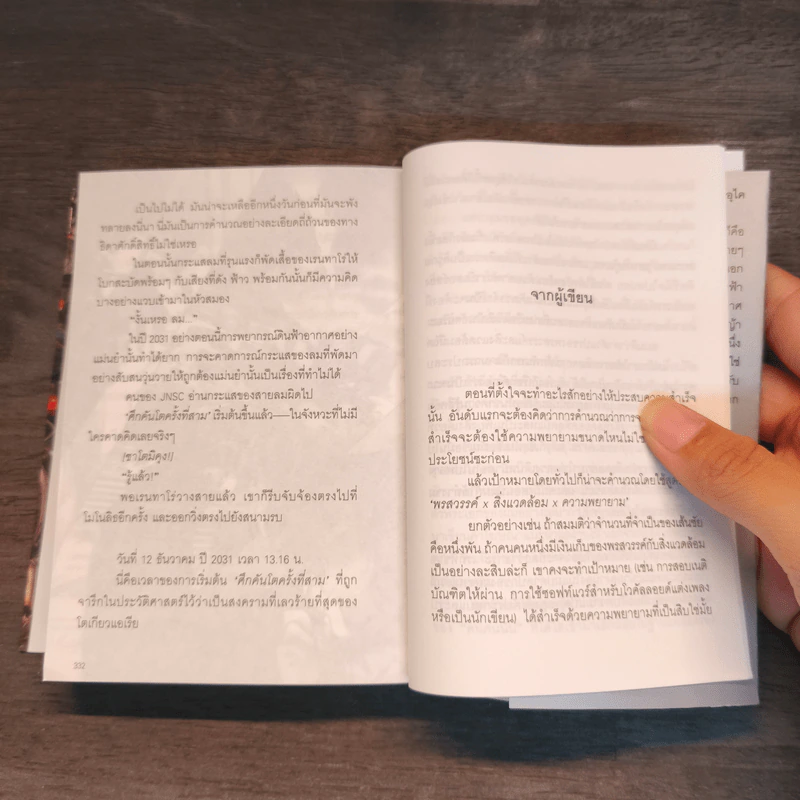 เป็นไปไม่ได้ มันน่าจะเหลืออีกหนึ่งวันก่อนที่มันจะพัง
ทลายลงนี่นา นี่มันเป็นการคำนวณอย่างละเอียดถี่ถ้วนของทาง
ธิดาศักดิ์สิทธิ์ไม่ใช่เหรอ
ในตอนนั้นกระแสลมที่รุนแรงก็พัดเสื้อของเรนทาโร่ให้
โบกสะบัดพร้อมๆ กับเสียงที่ดัง ฟ้าว พร้อมกันนั้นก็มีความคิด
บางอย่างแวบเข้ามาในหัวสมอง
“งั้นเหรอ ลม...”
ในปี 2031 อย่างตอนนี้การพยากรณ์ดินฟ้าอากาศอย่าง
แม่นยำนั้นทำได้ยาก การจะคาดการณ์กระแสของลมที่พัดมา
อย่างสับสนวุ่นวายให้ถูกต้องแม่นยำนั้นเป็นเรื่องที่ทำไม่ได้
คนของ JNSC อ่านกระแสของสายลมผิดไป
‘ศึกคันโตครั้งที่สาม’ เริ่มต้นขึ้นแล้ว——ในจังหวะที่ไม่มี
ใครคาดคิดเลยจริงๆ
(ซาโตมิคุง!)
“รู้แล้ว!”
พอเรนทาโร่วางสายแล้ว เขาก็รีบจับจ้องตรงไปที่
โมโนลิธอีกครั้ง และออกวิ่งตรงไปยังสนามรบ
วันที่ 12 ธันวาคม ปี 2031 เวลา 13.16 น.
นี่คือเวลาของการเริ่มต้น ‘ศึกคันโตครั้งที่สาม’ ที่ถูก
จารึกในประวัติศาสตร์ไว้ว่าเป็นสงครามที่เลวร้ายที่สุดของ
โตเกียวแอเรีย
332
จากผู้เขียน
ตอนที่ตั้งใจจะทำอะไรสักอย่างให้ประสบความสำเร็จ
นั้น อันดับแรกจะต้องคิดว่าการคำนวณว่าการจะ
สำเร็จจะต้องใช้ความพยายามขนาดไหนไม่ใช่
ประโยชน์ซะก่อน
แล้วเป้าหมายโดยทั่วไปก็น่าจะคำนวณโดยใช้สูตร
‘พรสวรรค์ x สิ่งแวดล้อม x ความพยายาม’
ยกตัวอย่างเช่น ถ้าสมมติว่าจำนวนที่จำเป็นของเส้นชัย
คือหนึ่งพัน ถ้าคนคนหนึ่งมีเงินเก็บของพรสวรรค์กับสิ่งแวดล้อม
เป็นอย่างละสิบล่ะก็ เขาคงจะทำเป้าหมาย (เช่น การสอบเนติ
บัณฑิตให้ผ่าน การใช้ซอฟท์แวร์สำหรับโวคัลลอยด์แต่งเพลง
หรือเป็นนักเขียน) ได้สำเร็จด้วยความพยายามที่เป็นสิบใช่มั้ย